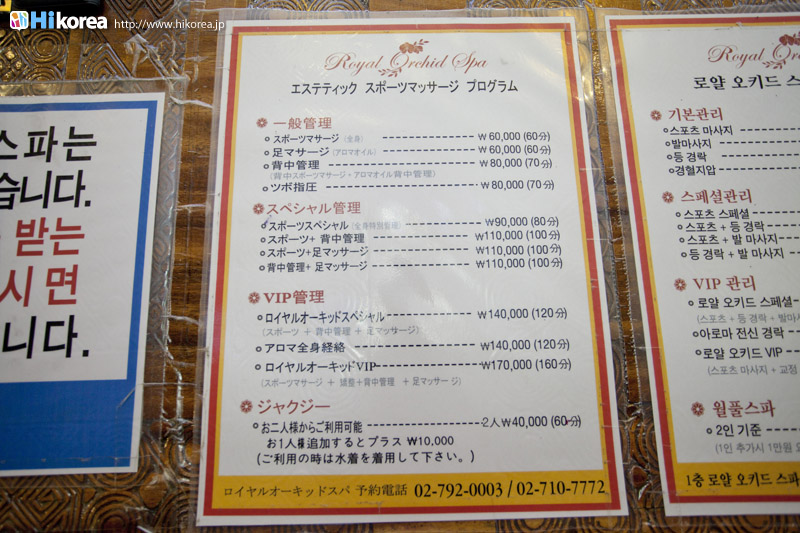 Hikorea http://www.hikorea.jp
스파는
습니다.
받는
시면
니다.
Royal Orchid Spa
エステティック スポーツマッサージ プログラム
一般管理
スポーツマサージ (全身) ₩60,000 (60分)
足マサージ (アロマオイル) ₩60,000 (60分)
背中管理 ₩80,000 (70分)
(背中スポーツマサージ + アロマオイル背中管理)
ツボ指圧 ₩80,000 (70分)
スペシャル管理
スポーツスペシャル (全身特別管理) ₩90,000 (80分)
スポーツ+ 背中管理 ₩110,000 (100分)
スポーツ+ 足マッサージ ₩110,000 (100分)
背中管理+ 足マッサージ ₩110,000 (100分)
VIP管理
ロイヤルオーキッドスペシャル ₩140,000 (120分)
(スポーツ + 背中管理 + 足マッサージ)
アロマ全身経絡 ₩140,000 (120分)
ロイヤルオーキッドVIP ₩170,000 (160分)
(スポーツマサージ + 頭整+背中管理 + 足マッサージ)
ジャクジー
お二人様からご利用可能 2人₩40,000 (60分)
お1人様追加するとプラス ₩10,000
(ご利用の時は水着を着用して下さい。)
ロイヤルオーキッドスパ 予約電話 02-792-0003 / 02-710-7772
Royal Or
로얄 오키드 스
기본관리
스포츠 마사지
발마사지
등 경락
경혈지압
스페셜관리
스포츠 스페셜
스포츠 + 등 경락
스포츠 + 발 마사지
등 경락 + 발 마사지
VIP 관리
로얄 오키드 스페셜
(스포츠 + 등 경락 + 발마사
아로마 전신 경락
로얄 오키드 VIP
(스포츠 마사지 + 교정
월풀스파
2인 기준
(1인 추가시 1만원
1층 로얄 오키드 스파